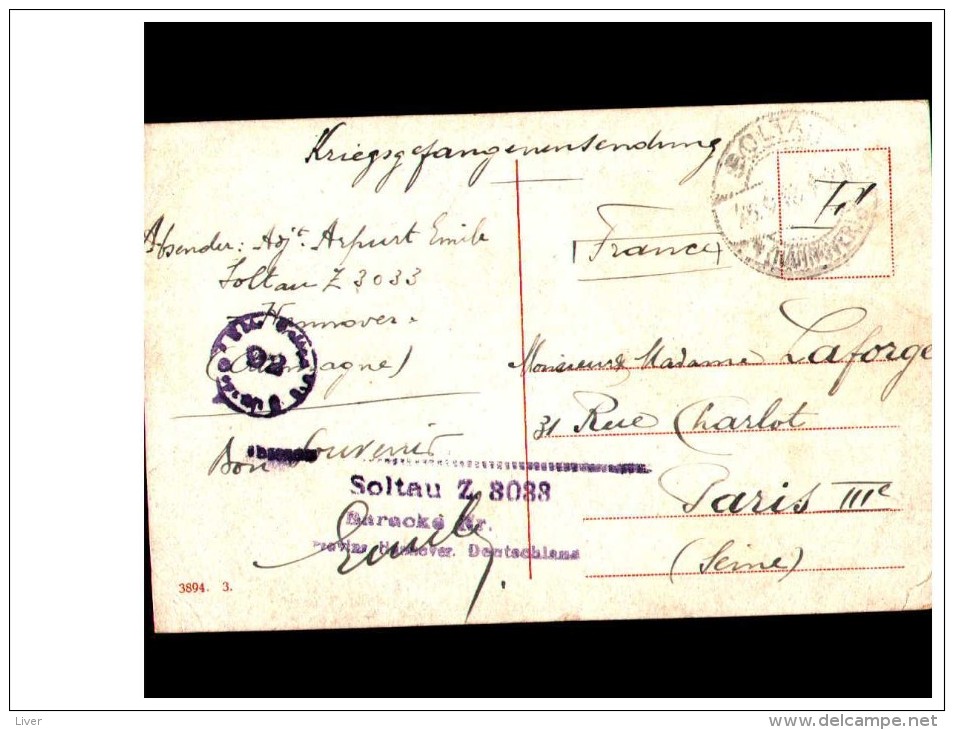 Kriegsgefangenensendung
SOLTAU
(HANNOVER)
F
Absender: Adjt. Arpurt Emile
Soltau Z 3033
Hannover.
(Allemagne)
92
Bon Souvenir
Emile
France
Monsieur & Madame Laforge
31 Rue Charlot
Paris IIIe
(Seine)
Soltau Z 3033
Baracke Nr.
Provinz Hannover. Deutschland
3894. 3.
Liver
www.delcampe.net